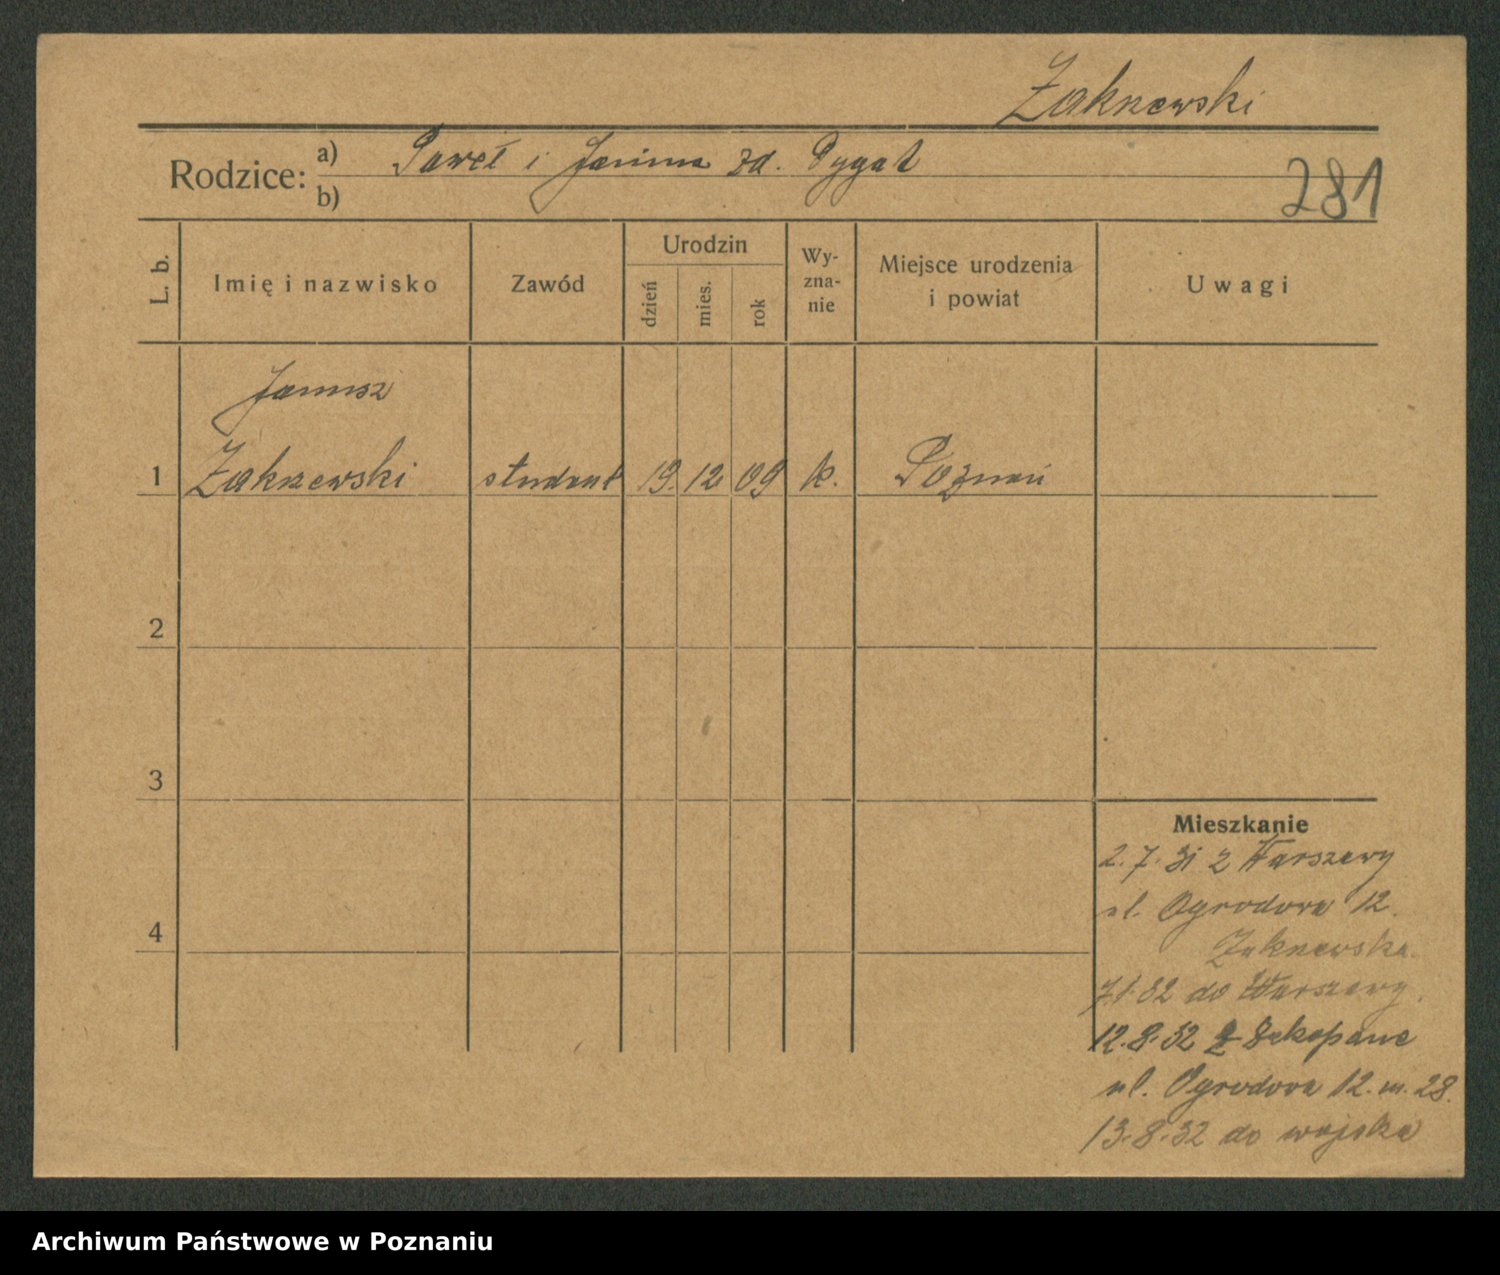 Zakrzewski
Rodzice: a) Paweł i Janina zd. Dygat
b)
281
L. b.
Imię i nazwisko
Zawód
Urodzin
dzień
mies.
rok
Wy-
zna-
nie
Miejsce urodzenia
i powiat
Uwagi
Janusz
1 Zakrzewski student 19. 12 09 k. Poznań
2
3
4
Mieszkanie
2. 7. 31 z Warszawy
ul. Ogrodowa 12.
Zakrzewska.
7.1.32 do Warszawy.
12.8.32 z Zakopane
ul. Ogrodowa 12. m. 28.
13.8.32 do wojska
Archiwum Państwowe w Poznaniu